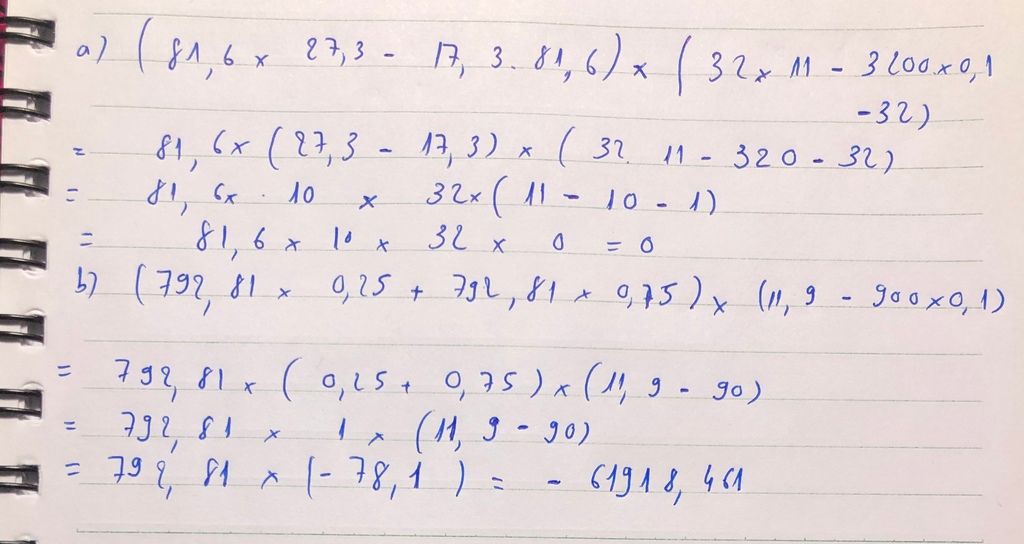 a) (81,6 x 27,3 - 17,3. 81,6) x (32 x 11 - 3200 x 0,1
-32)
= 81,6 x (27,3 - 17,3) x (32. 11 - 320 - 32)
= 81,6 x . 10 x 32 x (11 - 10 - 1)
= 81,6 x 10 x 32 x 0 = 0
b) (792,81 x 0,25 + 792,81 x 0,75) x (11,9 - 900 x 0,1)
= 792,81 x (0,25 + 0,75) x (11,9 - 90)
= 792,81 x 1 x (11,9 - 90)
= 792,81 x (- 78,1) = - 61918,461